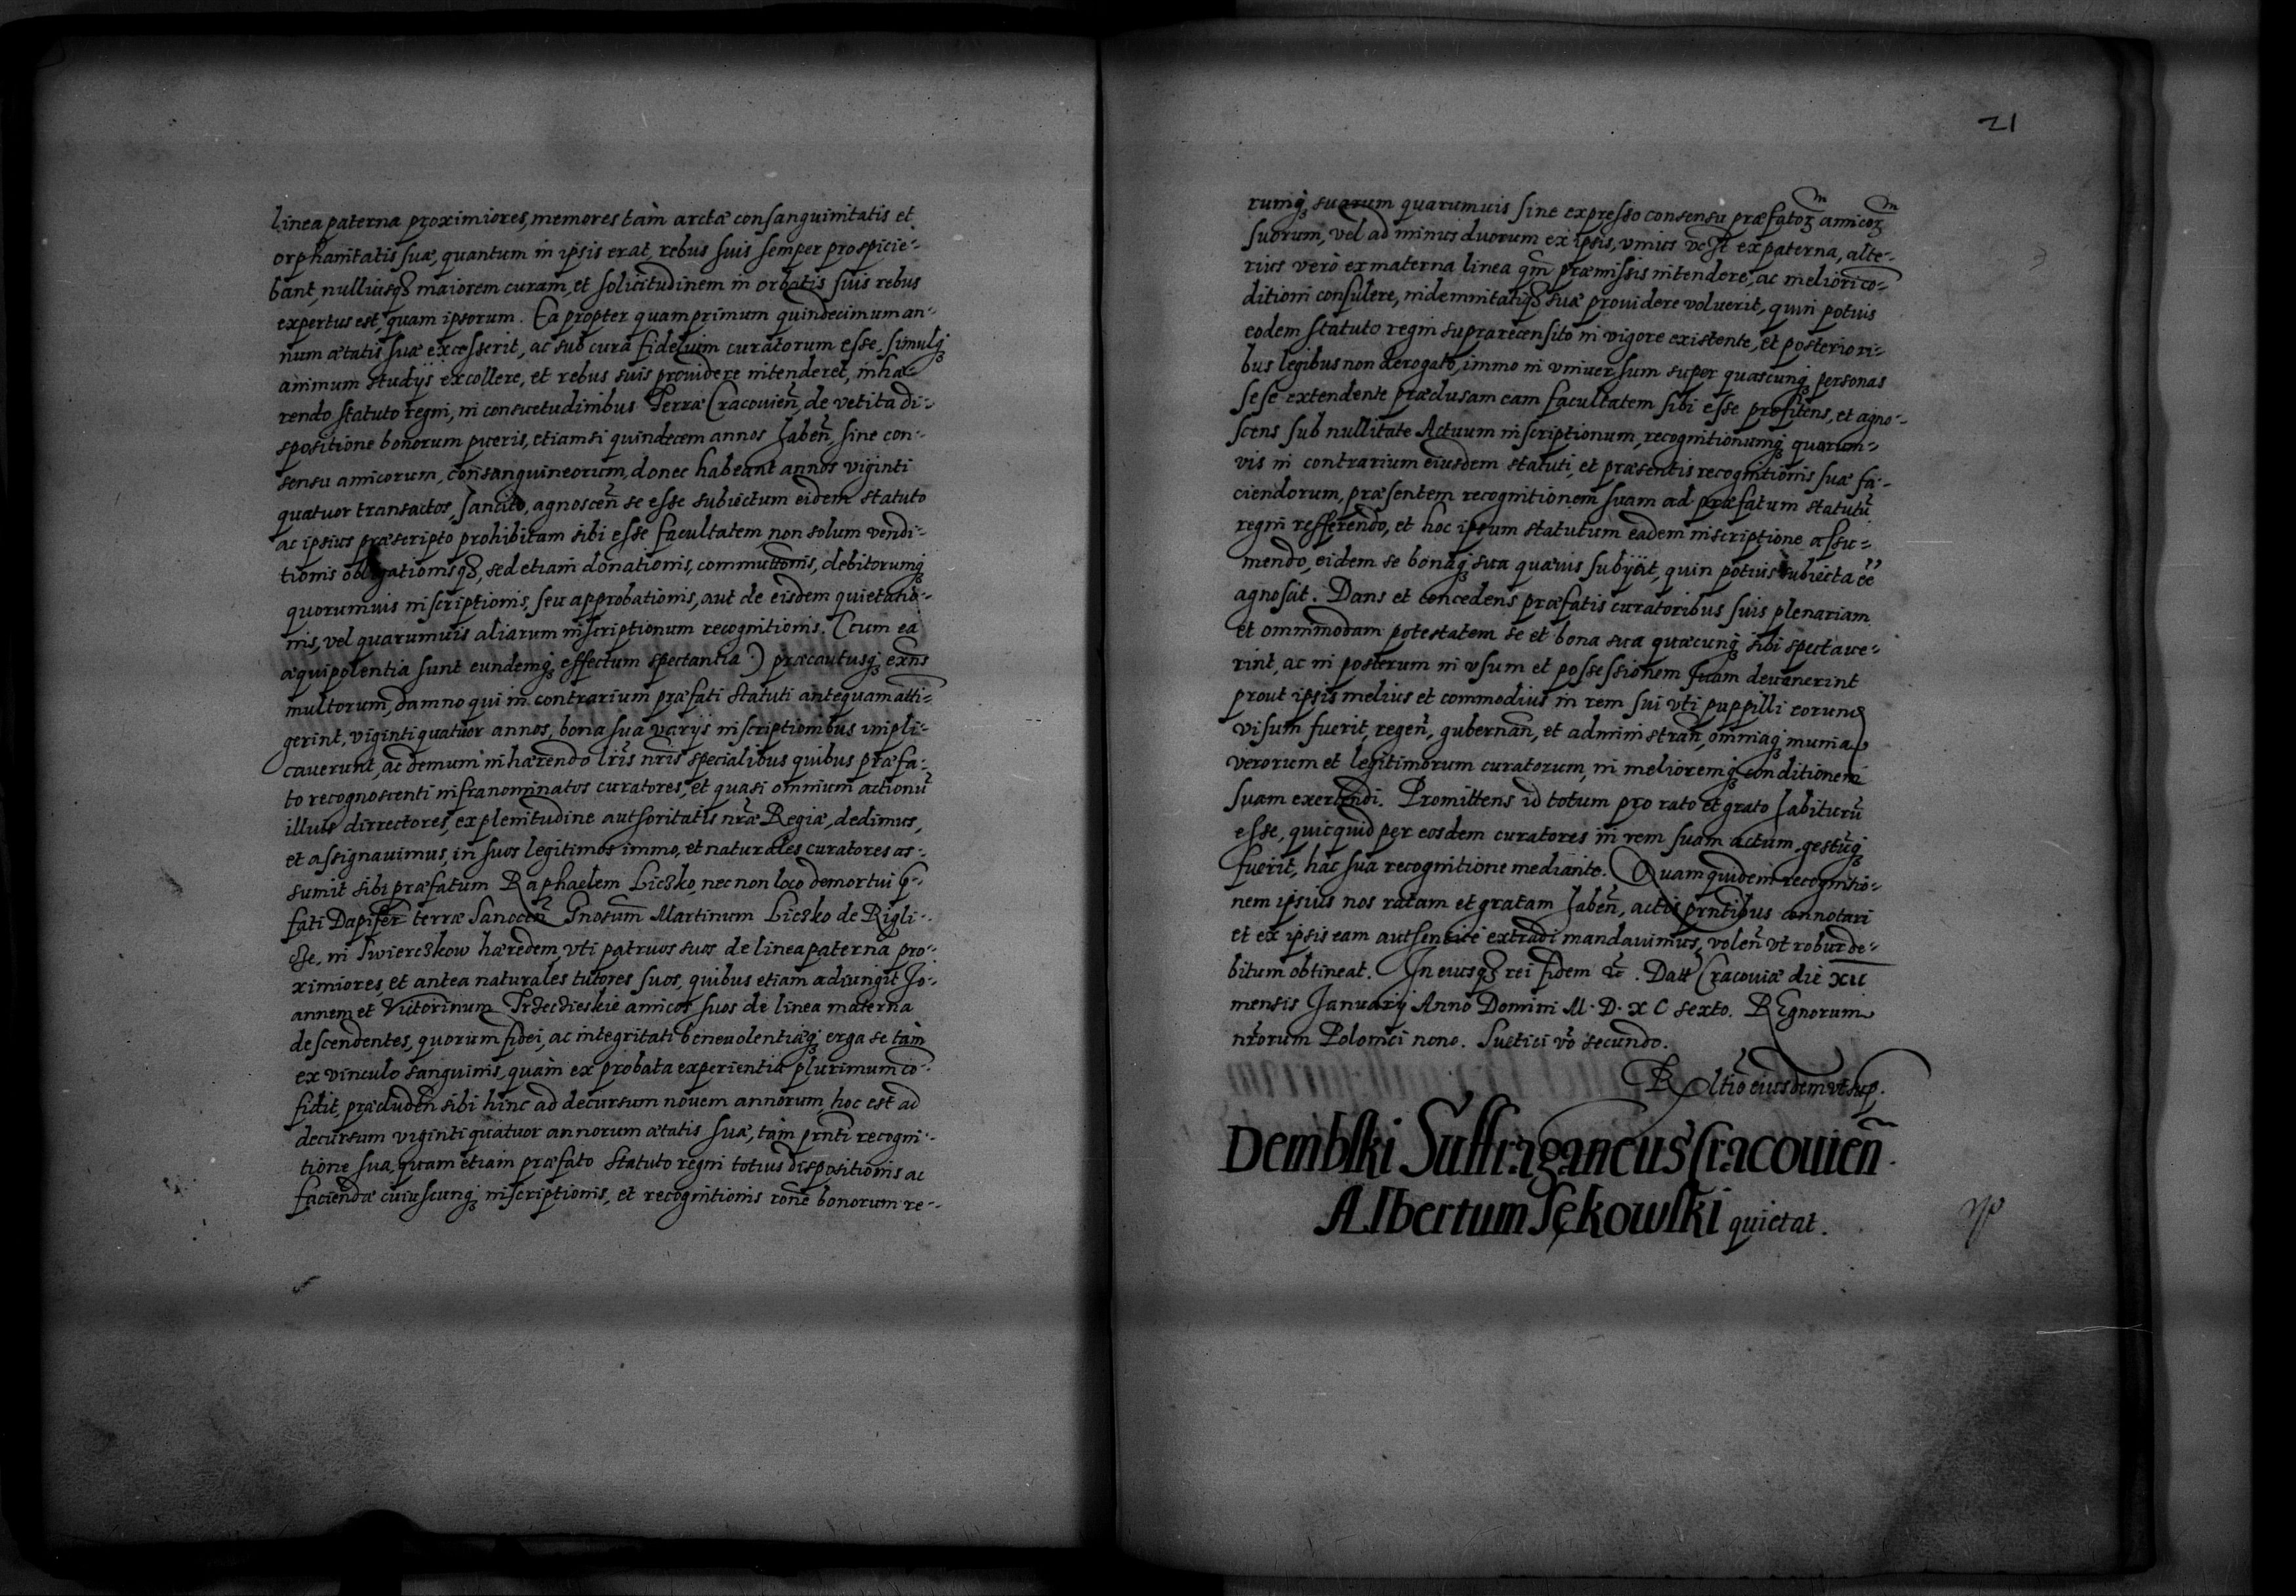 linea paterna proximiores, memores tam arctæ consanguinitatis et
orphanitatis suæ, quantum in ipsis erat, rebus suis semper prospicie-
bant, nulliusq3 maiorem curam, et solicitudinem in orbatis suis rebus
expertus est, quam ipsorum. Ea propter quamprimum quindecimum an-
num ætatis suæ excesserit, ac sub cura fidelium curatorum esse, simulq3
animum studijs excollere, et rebus suis prouidere intenderet, inhæ-
rendo statuto regni, in consuetudinibus Terræ Cracouien̄, de vetita di-
spositione bonorum pueris, etiamsi quindecem annos haben̄, sine con-
sensu amicorum, consanguineorum, donec habeant annos viginti
quatuor transactos, sancito, agnoscen̄ se esse subiectum eidem statuto
ac ipsius præscripto prohibitam sibi esse facultatem non solum vendi-
tionis obligationisq3, sed etiam donationis, commuttōnis, debitorumq3
quorumuis inscriptionis, seu approbationis, aut de eisdem quietatio-
nis, vel quarumuis aliarum inscriptionum recognitionis. (cum ea
æquipolentia sunt eundemq3 effectum spectantia) præcautusq3 exn̄s
multorum, damno qui in contrarium præfati statuti antequam atti-
gerint, viginti quatuor annos, bona sua varijs inscriptionibus impli-
cauerunt, ac demum inhærendo lr̄is nr̄is specialibus quibus præfa-
to recognoscenti infranominatos curatores, et quasi omnium actionū
illius dirrectores, ex plenitudine authoritatis nr̄æ Regiæ, dedimus,
et assignauimus, in suos legitimos immo, et naturales curatores as-
sumit sibi præfatum Raphaelem Liczko, nec non loco demortui p-
fati Dapifer terræ Sanocen̄ Gnosum Martinum Liczko de Rigli-
cze, in Swierczkow hæredem, vti patruos suos de linea paterna pro-
ximiores, et antea naturales tutores suos, quibus etiam adiungit Jo-
annem et Victorinum Trzecieskie amicos suos de linea materna
descendentes, quorum fidei, ac integritati beneuolentiæq3 erga se tam
ex vinculo sanguinis, quam ex probata experientia plurimum cō-
fidit, præcluden̄ sibi hinc ad decursum nouem annorum, hoc est ad
decursum viginti quatuor annorum ætatis suæ, tam prn̄ti recogni-
tione sua, quam etiam præfato statuto regni totius dispositionis ac
faciendæ cuiuscunq3 inscriptionis, et recognitionis rōne bonorum re-
21
rumq3 suarum quarumuis sine expresso consensu præfator3 amicor3
suorum, vel ad minus duorum ex ipsis, vnius ex paterna, alte-
rius vero ex materna linea qm̄ præmissis intendere, ac meliori cō-
ditioni consulere, indemnitatiq3 suæ prouidere voluerit, quin potius
eodem statuto regni suprarecensito in vigore existente, et posteriori-
bus legibus non derogato, immo in vniuersum super quascunq3 personas
sese extendente præclusam eam facultatem sibi esse profitens, et agno-
scens sub nullitate Actuum inscriptionum, recognitionumq3 quarum-
vis in contrarium eiusdem statuti, et præsentis recognitionis suæ fa-
ciendorum, præsentem recognitionem suam ad præfatum statutū
regni refferendo, et hoc ipsum statutum eadem inscriptione assu-
mendo, eidem se bonaq3 sua quæuis subijcit, quin potius subiecta ēē
agnoscit. Dans et concedens præfatis curatoribus suis plenariam
et ommimodam potestatem se et bona sua quæcunq3 sibi spectaue-
rint, ac in posterum in vsum et possessionem suam deuenerint
prout ipsis melius et commodius in rem sui vti puppilli eorum
visum fuerit, regen̄, gubernan̄, et administran̄, omniaq3 munia
verorum et legitimorum curatorum, in melioremq3 conditionem
suam exercendi. Promittens id totum pro rato et grato habiturū
esse, quicquid per eosdem curatores in rem suam actum, gestūq3
fuerit, hac sua recognitione mediante. Quam quidem recognitio-
nem ipsius nos ratam et gratam haben̄, actis prn̄tibus connotari
et ex ipsis eam authentice extradi mandauimus, volen̄ vt robur de-
bitum obtineat. In cuiusq3 rei fidem etc. Datt Cracouiæ die XII
mensis Januarij Anno Domini M. D. XC sexto. REgnorum
nr̄orum Polonici nono. Suetici vō secundo.
Rltiō eiusdem vt sup.
Dembski Suffraganeus Cracouien̄
Albertum Sękowski quietat.